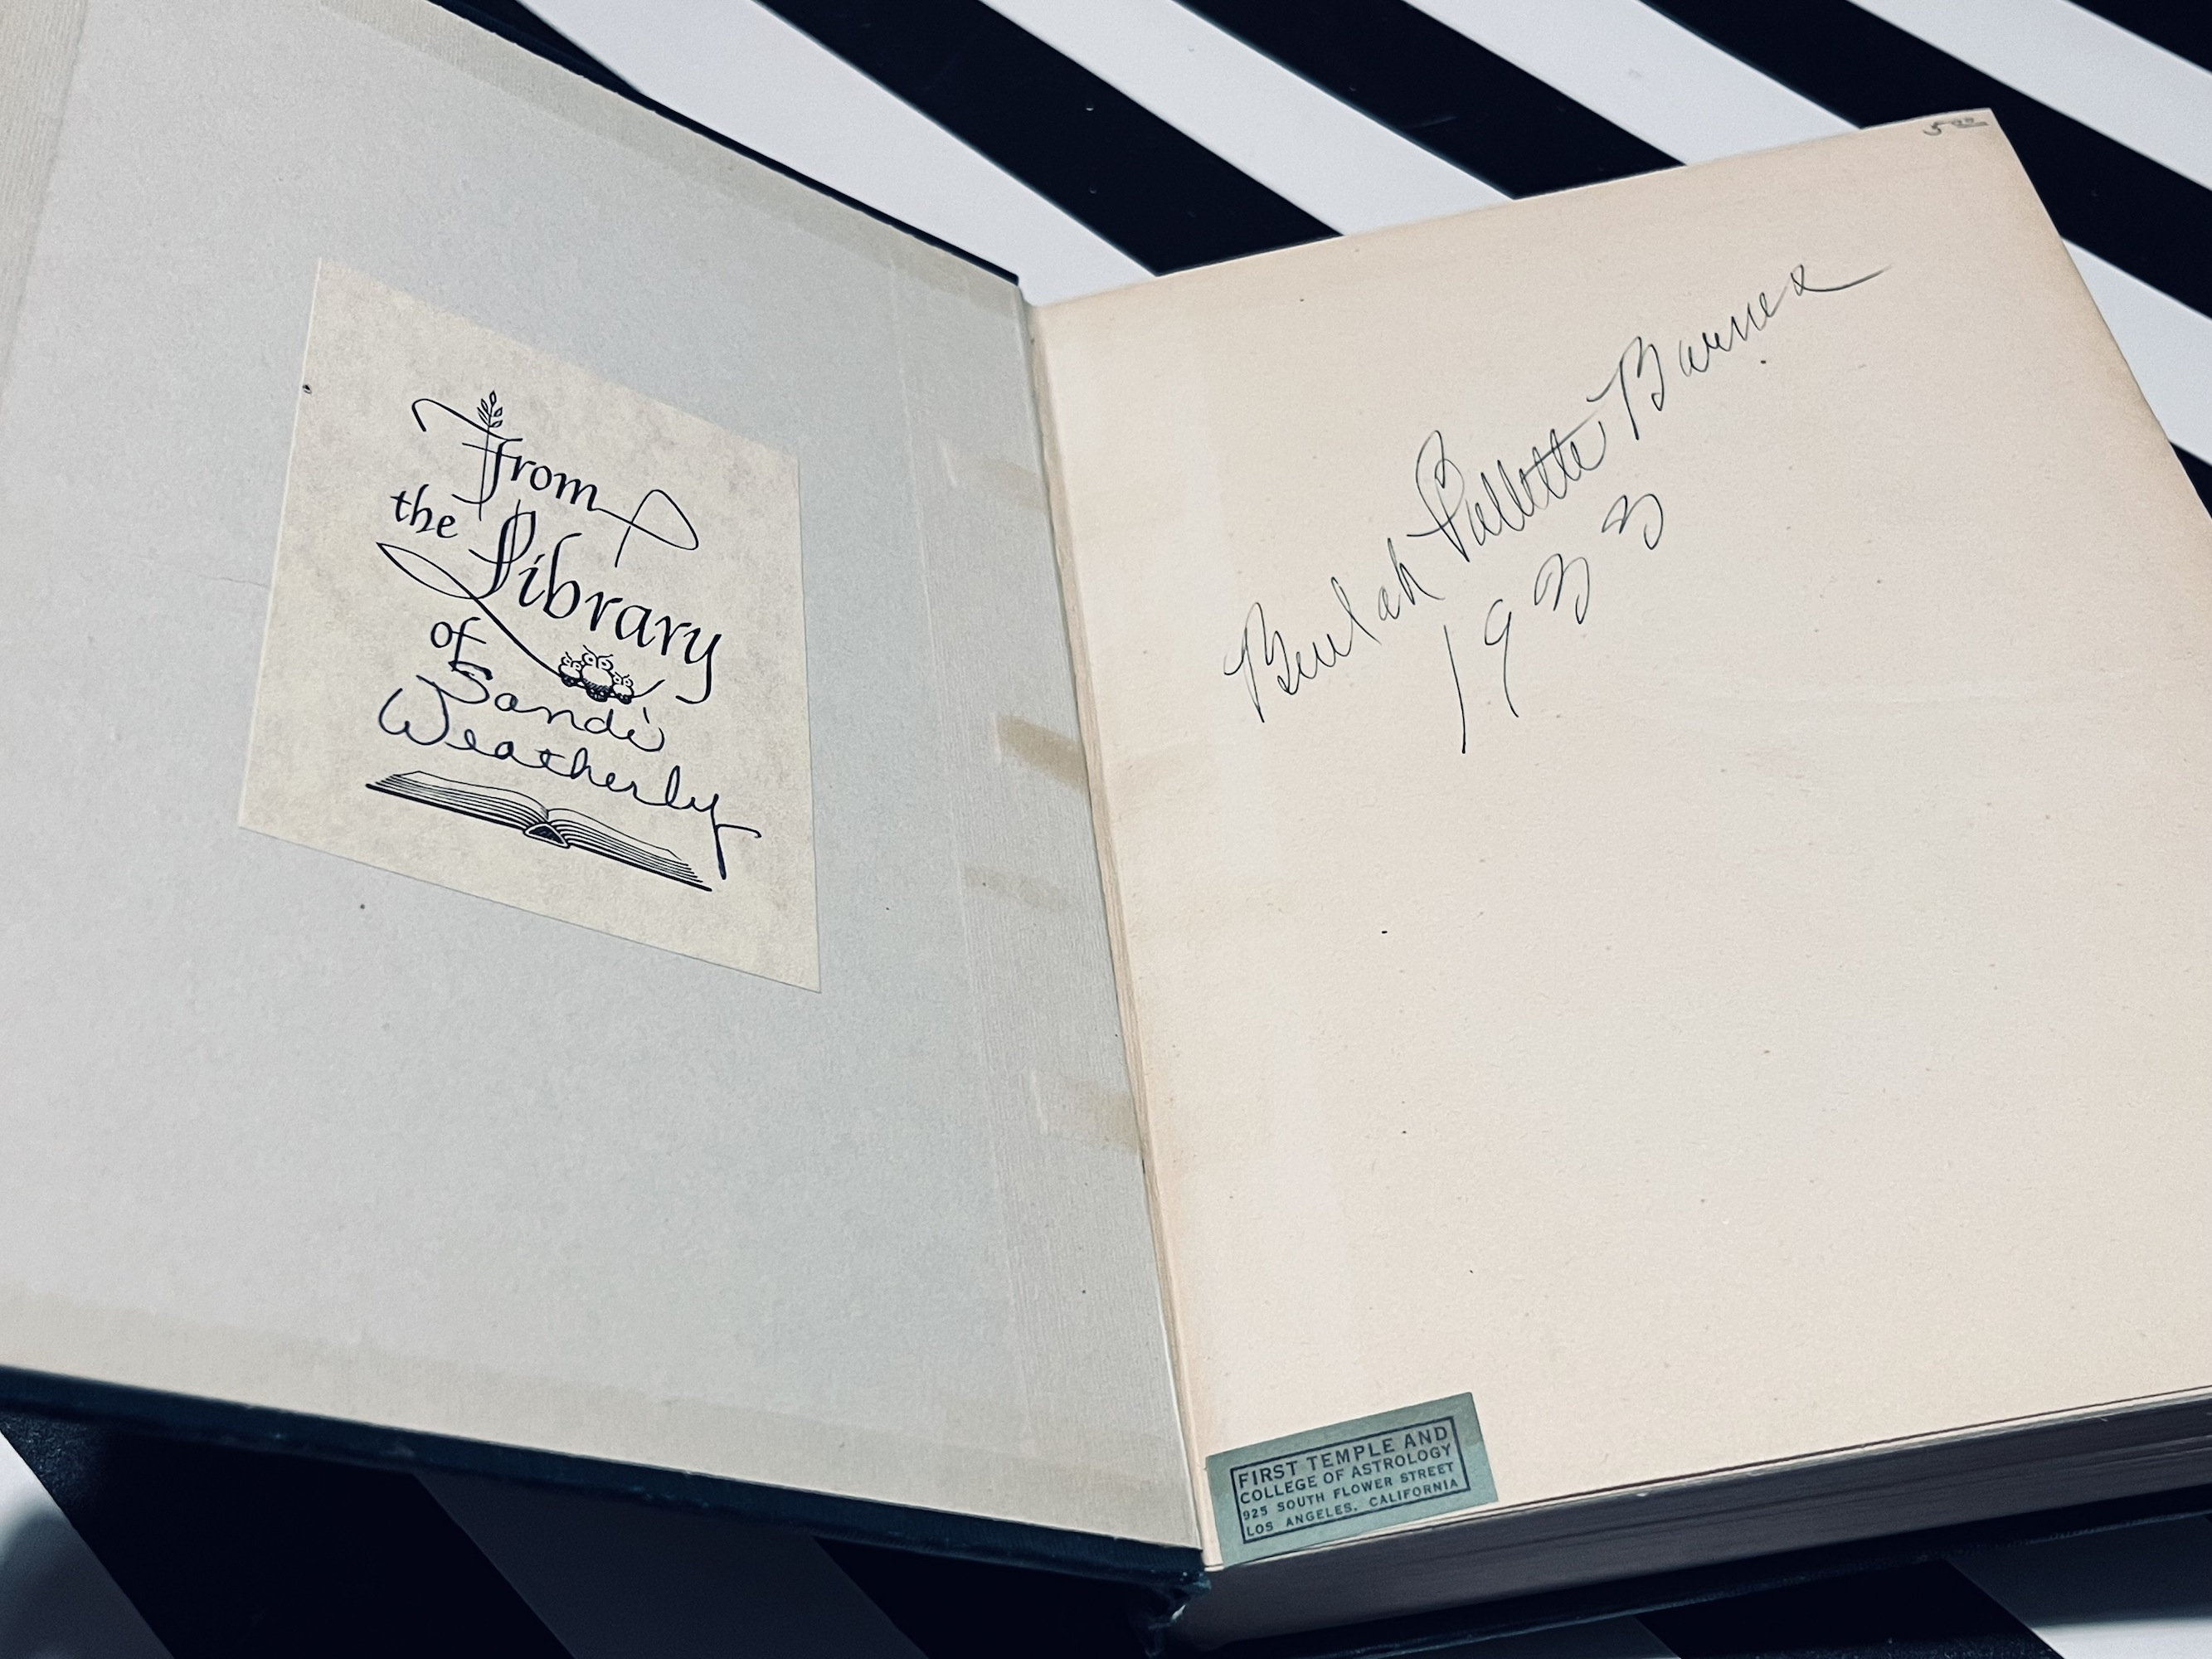 From
the Library
of
Sandi
Weatherly
5.00
Beulah
1933
FIRST TEMPLE AND
COLLEGE OF ASTROLOGY
925 SOUTH FLOWER STREET
LOS ANGELES, CALIFORNIA